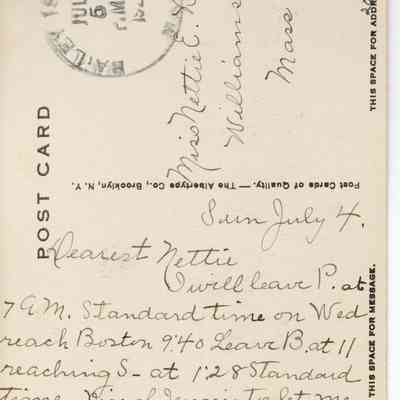 POST CARD
JUL
5
Miss Nettie E.
Williams
Mass
THIS SPACE FOR ADDR
Post Cards of Quality. — The Albertype Co., Brooklyn, N. Y.
THIS SPACE FOR MESSAGE.
Sun July 4.
Dearest Nettie
I will leave P. at
7 A.M. Standard time on Wed
reach Boston 9:40 Leave B. at 11
reaching S- at 1:28 Standard
time.